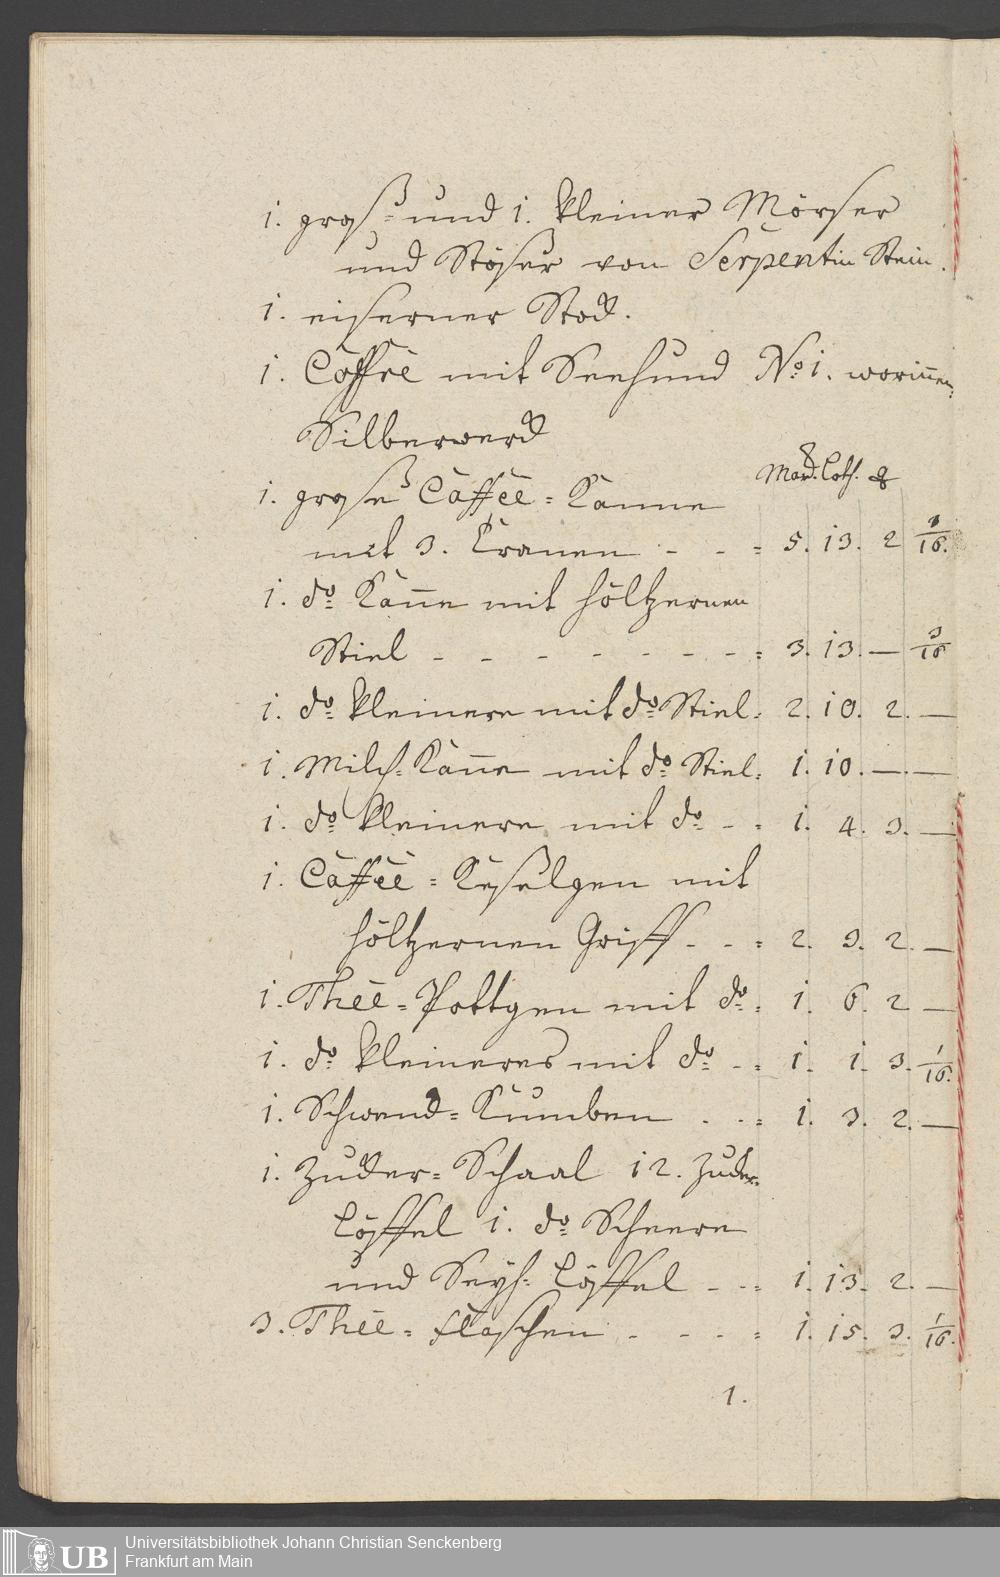 1. groß= und 1. kleiner Mörser
und Stößer von Serpentin Stein.
1. eiserner Stock.
1. Coffre mit Seehund No 1. worinnen
Silberwerck
Marck. Loth. q
1. große Caffée=Kanne
mit 3. Cranen - - = 5. 13. 2 3/16.
1. do Kanne mit höltzernen
Stiel - - - - - - - = 3. 13. — 3/16
1. do kleinere mit do Stiel= 2. 10. 2. —
1. Milch=Kanne mit do Stiel= 1. 10. — —
1. do kleinere mit do - = 1. 4. 3. —
1. Caffée=Keßelgen mit
höltzernen Griff - - = 2. 3. 2. —
1. Thée=Pottgen mit do = 1. 6. 2 —
1. do kleineres mit do - = 1. 1. 3. 1/16.
1. Schwenck=Kumben - - = 1. 3. 2. —
1. Zucker=Schaal 12. Zucker=
Löffel 1. do Scheere
und Seyh=Löffel - - = 1. 13. 2. —
3. Thée=flaschen - - - = 1. 15. 3. 1/16.
1.
UB Universitätsbibliothek Johann Christian Senckenberg
Frankfurt am Main